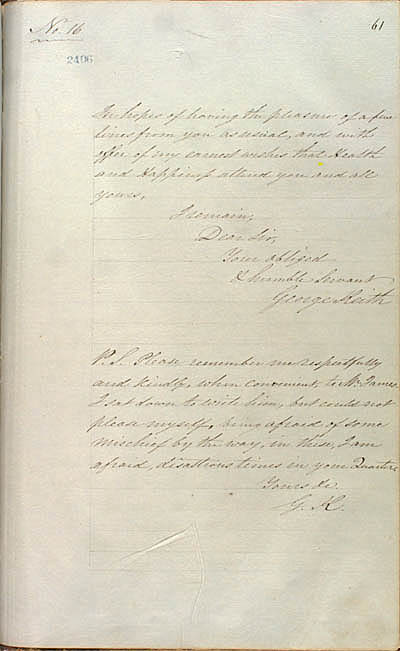 No. 16
61
2406
In hopes of having the pleasure of a few
lines from you as usual, and with
offer of my earnest wishes that Health
and Happiness attend you and all
yours,
I remain,
Dear Sir,
Your obliged
& humble Servant
George Keith
P.S. Please remember me respectfully
and kindly, when convenient to Mr. James.
I sat down to write him, but could not
please myself, being afraid of some
mischief by the way, in these, I am
afraid, disastrous times in your Quarter.
Yours &c.
G. K.